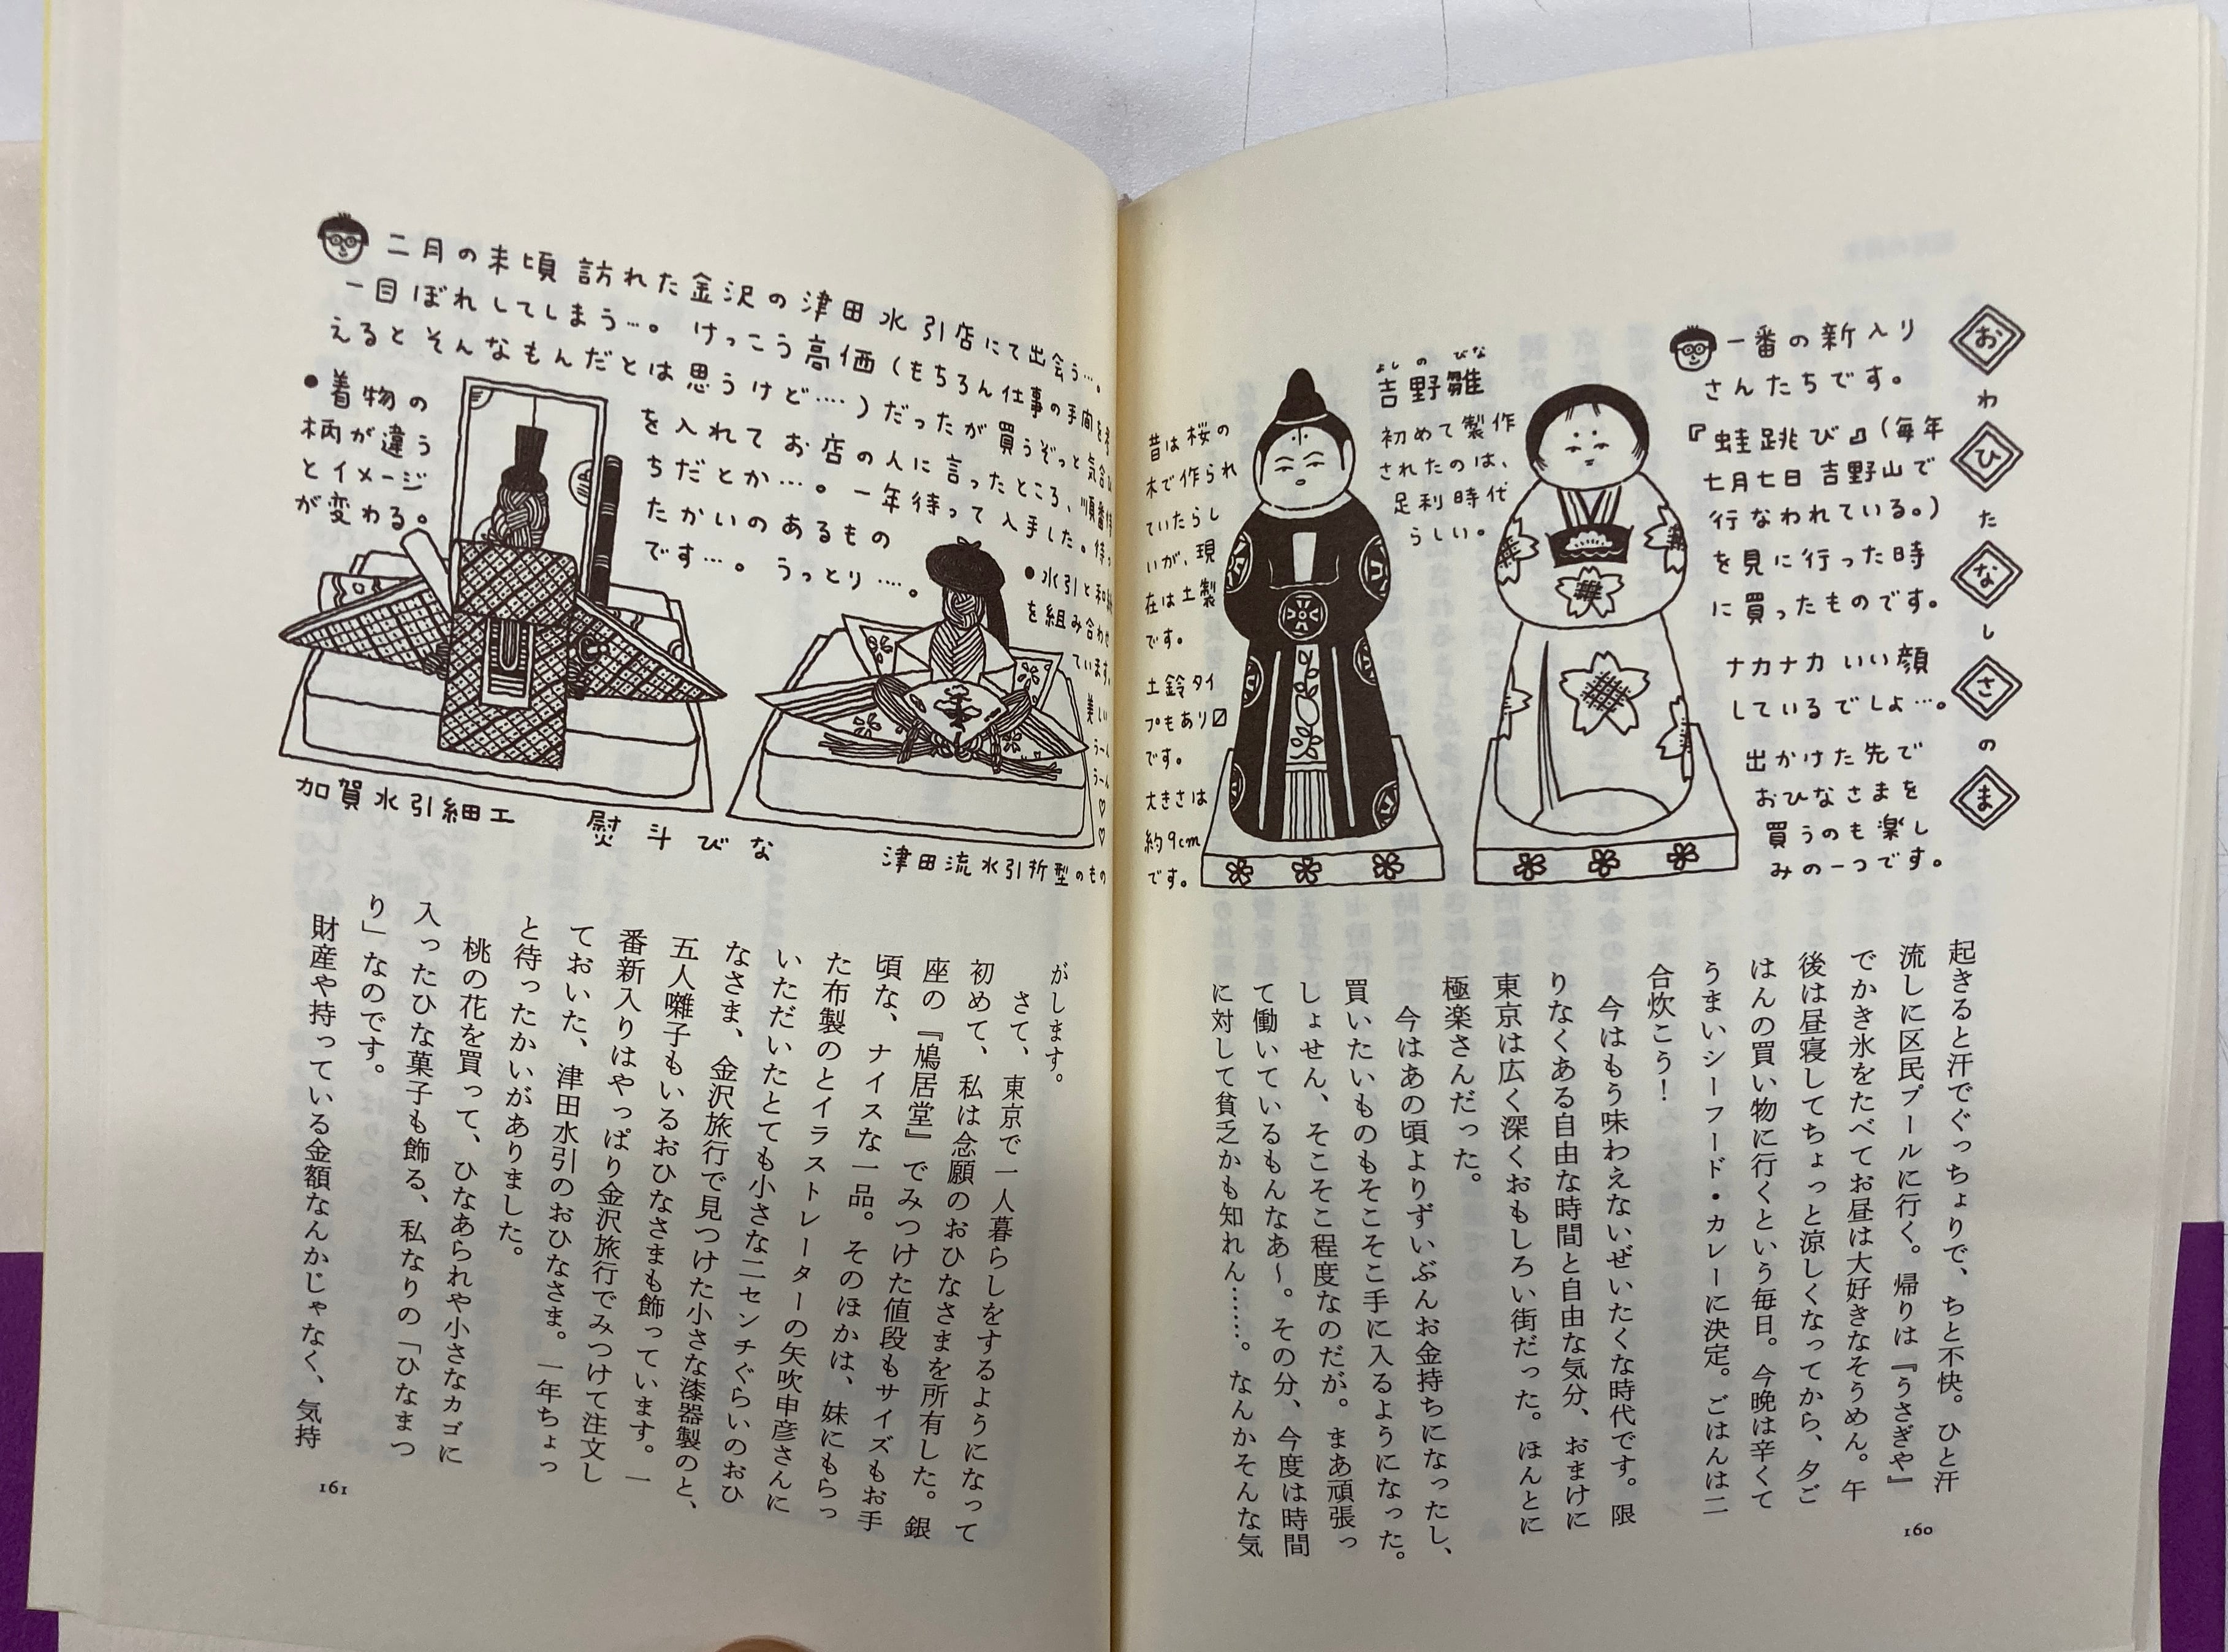 おわひたなしさのま
一番の新入り
さんたちです。
『蛙跳び』(毎年
七月七日 吉野山で
行なわれている。)
を見に行った時
に買ったものです。
ナカナカ いい顔
しているでしょ…。
出かけた先で
おひなさまを
買うのも楽し
みの一つです。
よしのびな
吉野雛
初めて製作
されたのは、
足利時代
らしい。
昔は桜の
木で作られ
ていたらし
いが、現
在は土製
です。
土鈴タイ
プもあり〼
です。
大きさは
約9cm
です。
起きると汗でぐっちょりで、ちと不快。ひと汗
流しに区民プールに行く。帰りは『うさぎや』
でかき氷をたべてお昼は大好きなそうめん。午
後は昼寝してちょっと涼しくなってから、夕ご
はんの買い物に行くという毎日。今晩は辛くて
うまいシーフード・カレーに決定。ごはんは二
合炊こう!
今はもう味わえないぜいたくな時代です。限
りなくある自由な時間と自由な気分、おまけに
東京は広く深くおもしろい街だった。ほんとに
極楽さんだった。
今はあの頃よりずいぶんお金持ちになったし、
買いたいものもそこそこ手に入るようになった。
しょせん、そこそこ程度なのだが。まあ頑張っ
て働いているもんなあ〜。その分、今度は時間
に対して貧乏かも知れん……。なんかそんな気
160
二月の末頃 訪れた金沢の津田水引店にて出会う…。
一目ぼれしてしまう…。けっこう高価(もちろん仕事の手間を考
えるとそんなもんだとは思うけど….)だったが買うぞっと気合い
を入れてお店の人に言ったところ、順番待
ちだとか…。一年待って入手した。待っ
たかいのあるもの
です…。うっとり….。
●着物の
柄が違う
とイメージ
が変わる。
●水引と和紙
を組み合わせ
ています。
美しい
うーん
うーん
♡
♡
加賀水引細工
熨斗びな
津田流水引折型のもの
がします。
さて、東京で一人暮らしをするようになって
初めて、私は念願のおひなさまを所有した。銀
座の『鳩居堂』でみつけた値段もサイズもお手
頃な、ナイスな一品。そのほかは、妹にもらっ
た布製のとイラストレーターの矢吹申彦さんに
いただいたとても小さな二センチぐらいのおひ
なさま、金沢旅行で見つけた小さな漆器製のと、
五人囃子もいるおひなさまも飾っています。一
番新入りはやっぱり金沢旅行でみつけて注文し
ておいた、津田水引のおひなさま。一年ちょっ
と待ったかいがありました。
桃の花を買って、ひなあられや小さなカゴに
入ったひな菓子も飾る、私なりの「ひなまつ
り」なのです。
財産や持っている金額なんかじゃなく、気持
161